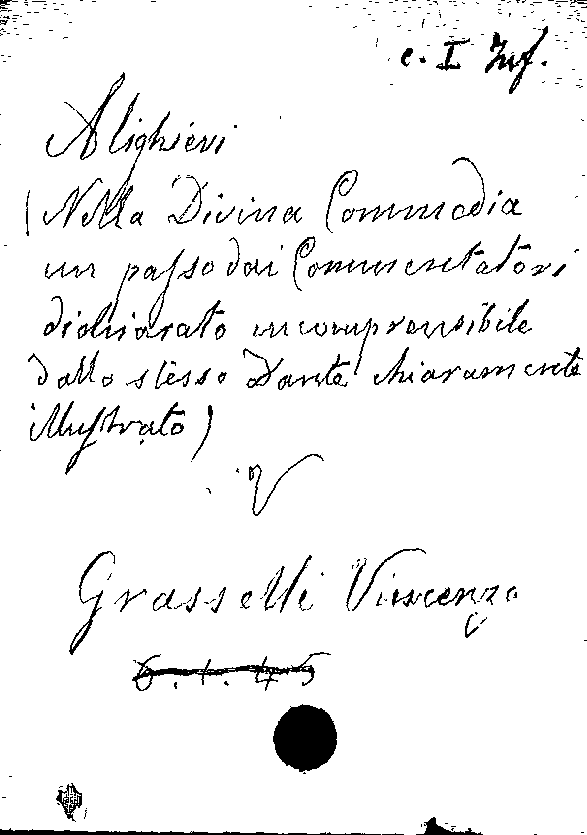 c. I Inf.
Alighieri
(Nella Divina Commedia
un passo dai Commentatori
dichiarato incomprensibile
dallo stesso Dante chiaramente
illustrato)
V
Grasselli Vincenzo
6.1.45